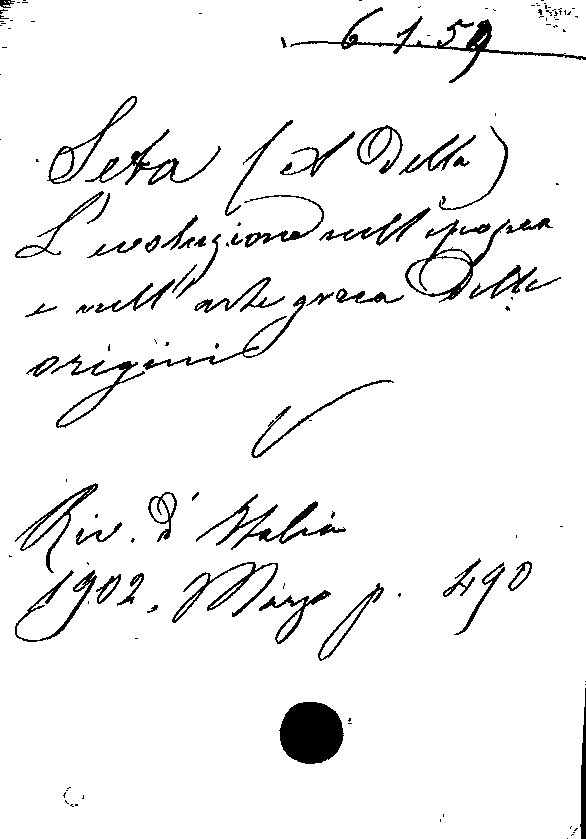 6.1.59
Seta (A Della)
L'evoluzione nell'epopea
e nell'arte greca delle
origini
Riv. d'Italia
1902, Marzo p. 490